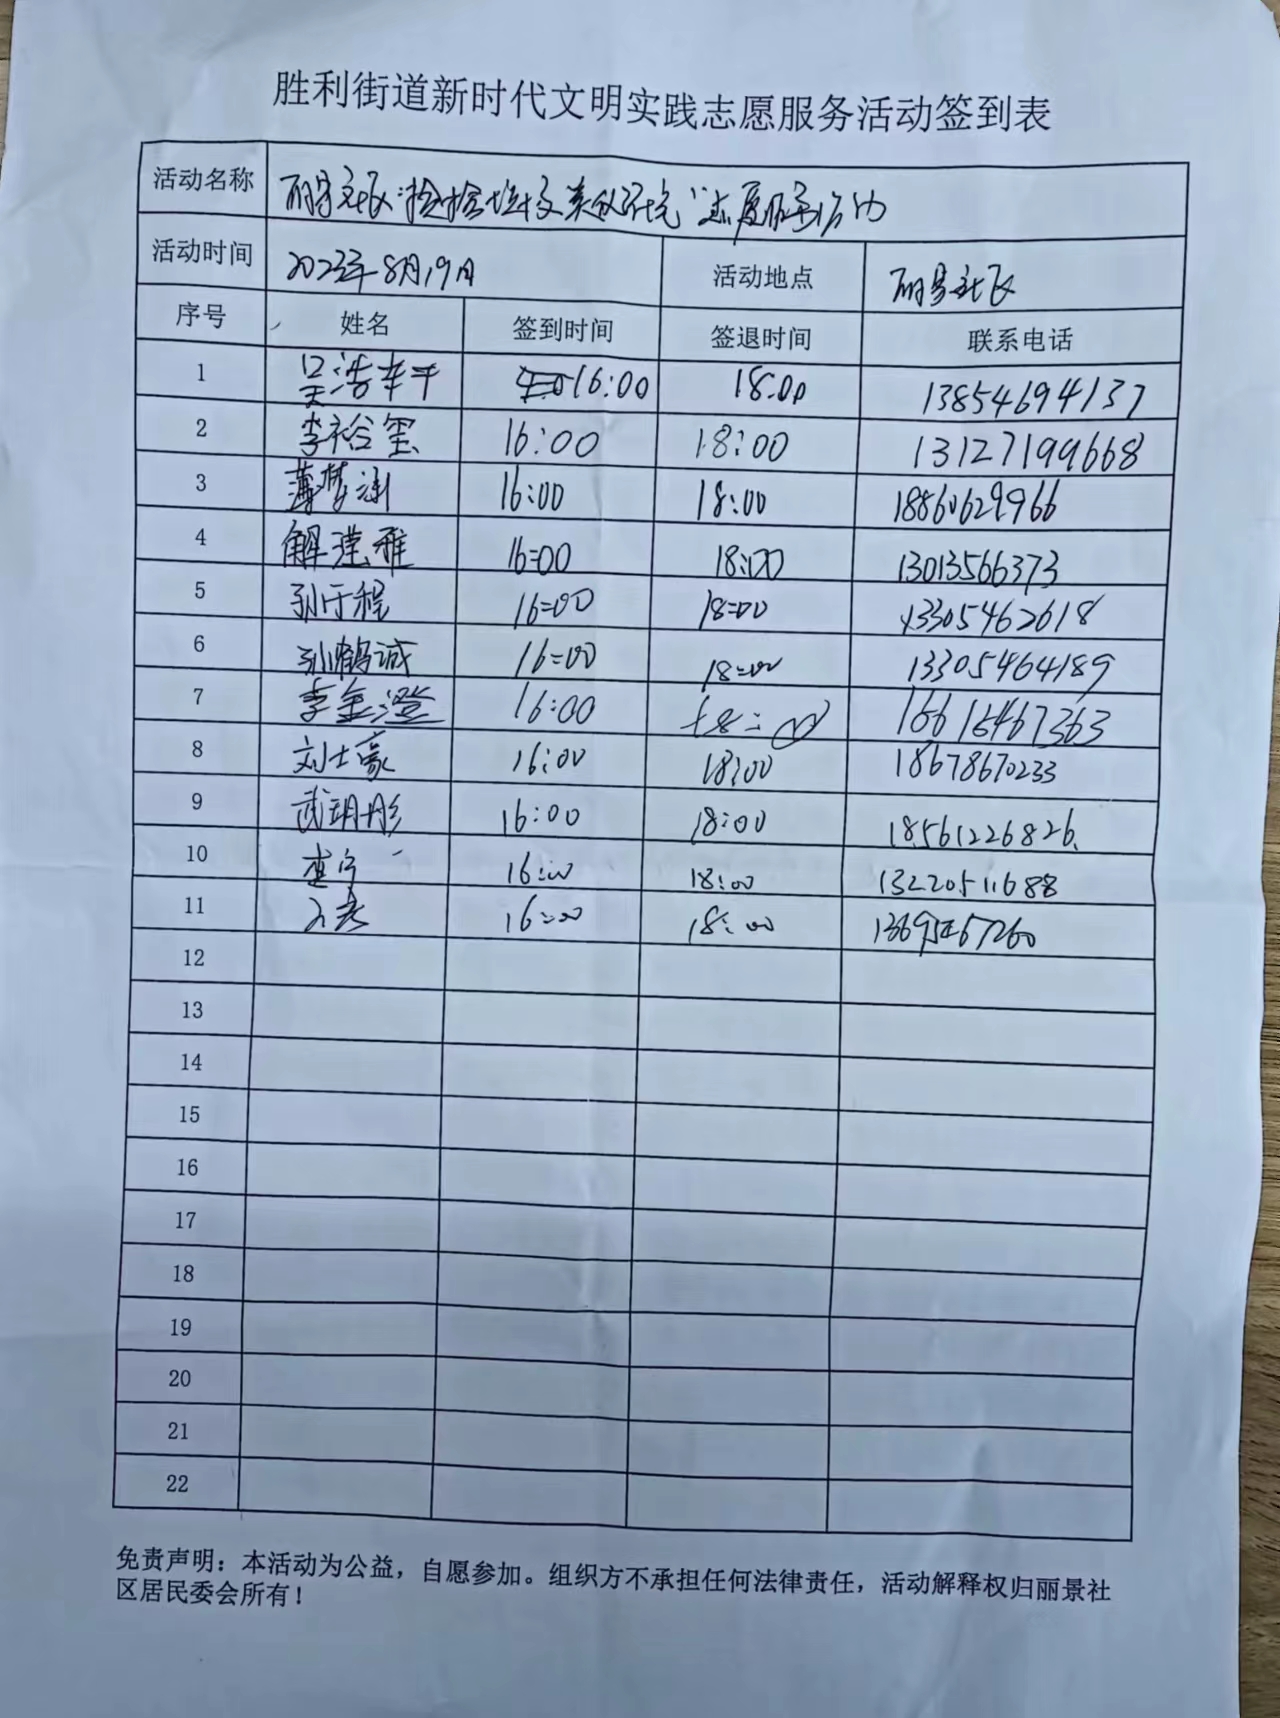 胜利街道新时代文明实践志愿服务活动签到表
活动名称 丽景社区"捡捡垃圾 美化环境"志愿服务活动
活动时间 2023年8月19日 活动地点 丽景社区
序号 姓名 签到时间 签退时间 联系电话
1 吴浩 16:00 18:00 13854694137
2 李裕玺 16:00 18:00 13127199668
3 薄梦 16:00 18:00 18860629966
4 解滢雅 16:00 18:00 13013566373
5 孙于程 16:00 18:00 13305462618
6 孙鹤诚 16:00 18:00 13305464189
7 李金澄 16:00 18:00 16616467363
8 刘士豪 16:00 18:00 18678670233
9 武玥彤 16:00 18:00 18561226826
10 李宁 16:00 18:00 13220511688
11 16:00 18:00
12
13
14
15
16
17
18
19
20
21
22
免责声明：本活动为公益，自愿参加。组织方不承担任何法律责任，活动解释权归丽景社
区居民委会所有！